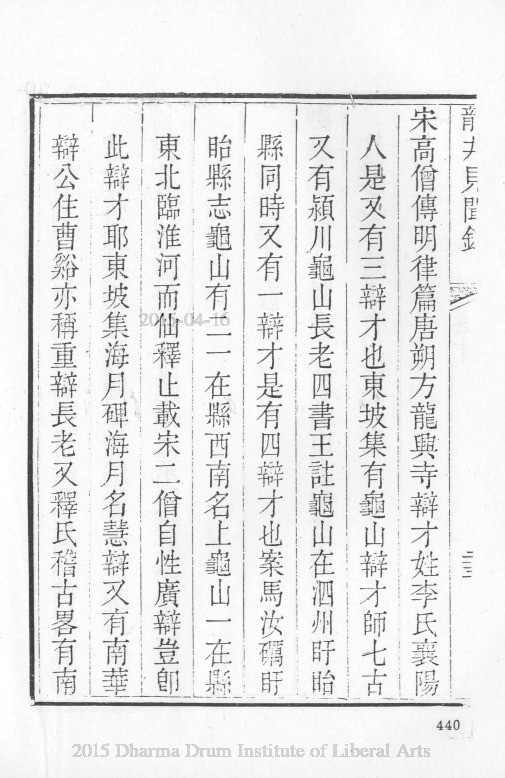 龍井見聞錄
宋高僧傳明律篇唐朔方龍興寺辯才姓李氏襄陽
人是又有三辯才也東坡集有龜山辯才師七古
又有潁川龜山長老四書王註龜山在泗州盱眙
縣同時又有一辯才是有四辯才也案馬汝礪盱
眙縣志龜山有二一在縣西南名上龜山一在縣
東北臨淮河而仙釋止載宋二僧自性廣辯豈卽
此辯才耶東坡集海月碑海月名慧辯又有南華
辯公住曹谿亦稱重辯長老又釋氏稽古畧有南
440
2015-04-16
2015 Dharma Drum Institute of Liberal Arts